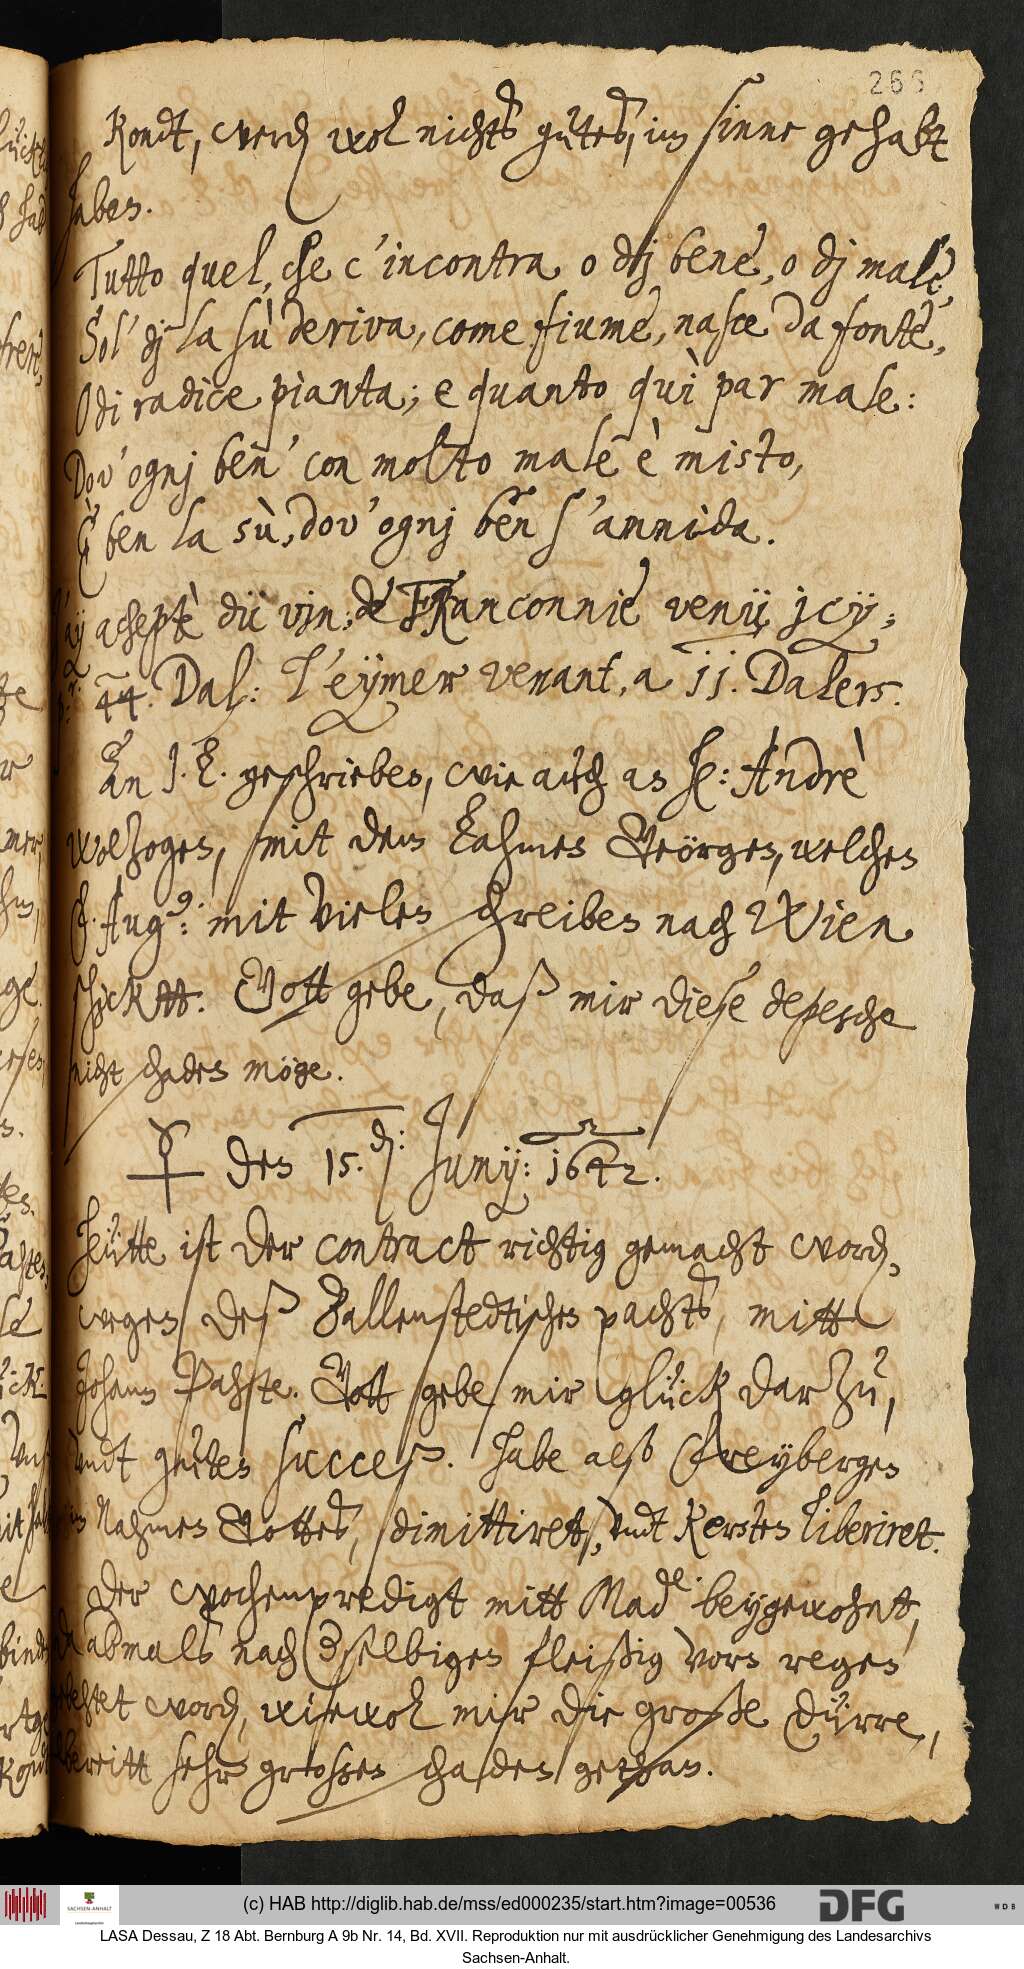 266
Kondt, werd wol nichts gutes, im sinne gehabt
haben.
Tutto quel, che c'incontra o dj bene, o dj male,
Sol' dj la sù deriva, come fiume, nasce da fonte,
O di radice pianta; e quanto quì par male:
Dov' ognj ben' con molto male è misto,
È ben la sù, dov' ognj ben s'annida.
J'ay achepté dü vjn, de Franconnie venü jcy,
p.r 44. Dal: l'eymer venant, a jj. Dalers.
An J. E. geschrieben, wie auch an H: Andrè
wolzogen, mit dem Lahmen Geörgen, welchen
F. Aug9: mit vielen schreiben nach Wien
schickt. Gott gebe, daß mir diese depesche
nicht schaden möge.
☿ den 15. d: Junij: 1642.
Heütte ist der contract richtig gemacht word,
wegen deß Ballenstedtischen pachts, mitt
Johann Pahste. Gott gebe mir glück dar zu,
undt guten succeß. Habe also Freybergen
im Nahmen Gottes, dimittiret, undt Kersten liberiret.
Der wochenpredigt mitt Mad.e beygewohnt,
da abmals nach derselbigen fleißig vorn regen
gebehtet word, wiewol mir die große dürre,
bereitt sehr großen schaden gethan.
(c) HAB http://diglib.hab.de/mss/ed000235/start.htm?image=00536
SACHSEN-ANHALT
DFG
WDB
LASA Dessau, Z 18 Abt. Bernburg A 9b Nr. 14, Bd. XVII. Reproduktion nur mit ausdrücklicher Genehmigung des Landesarchivs
Sachsen-Anhalt.